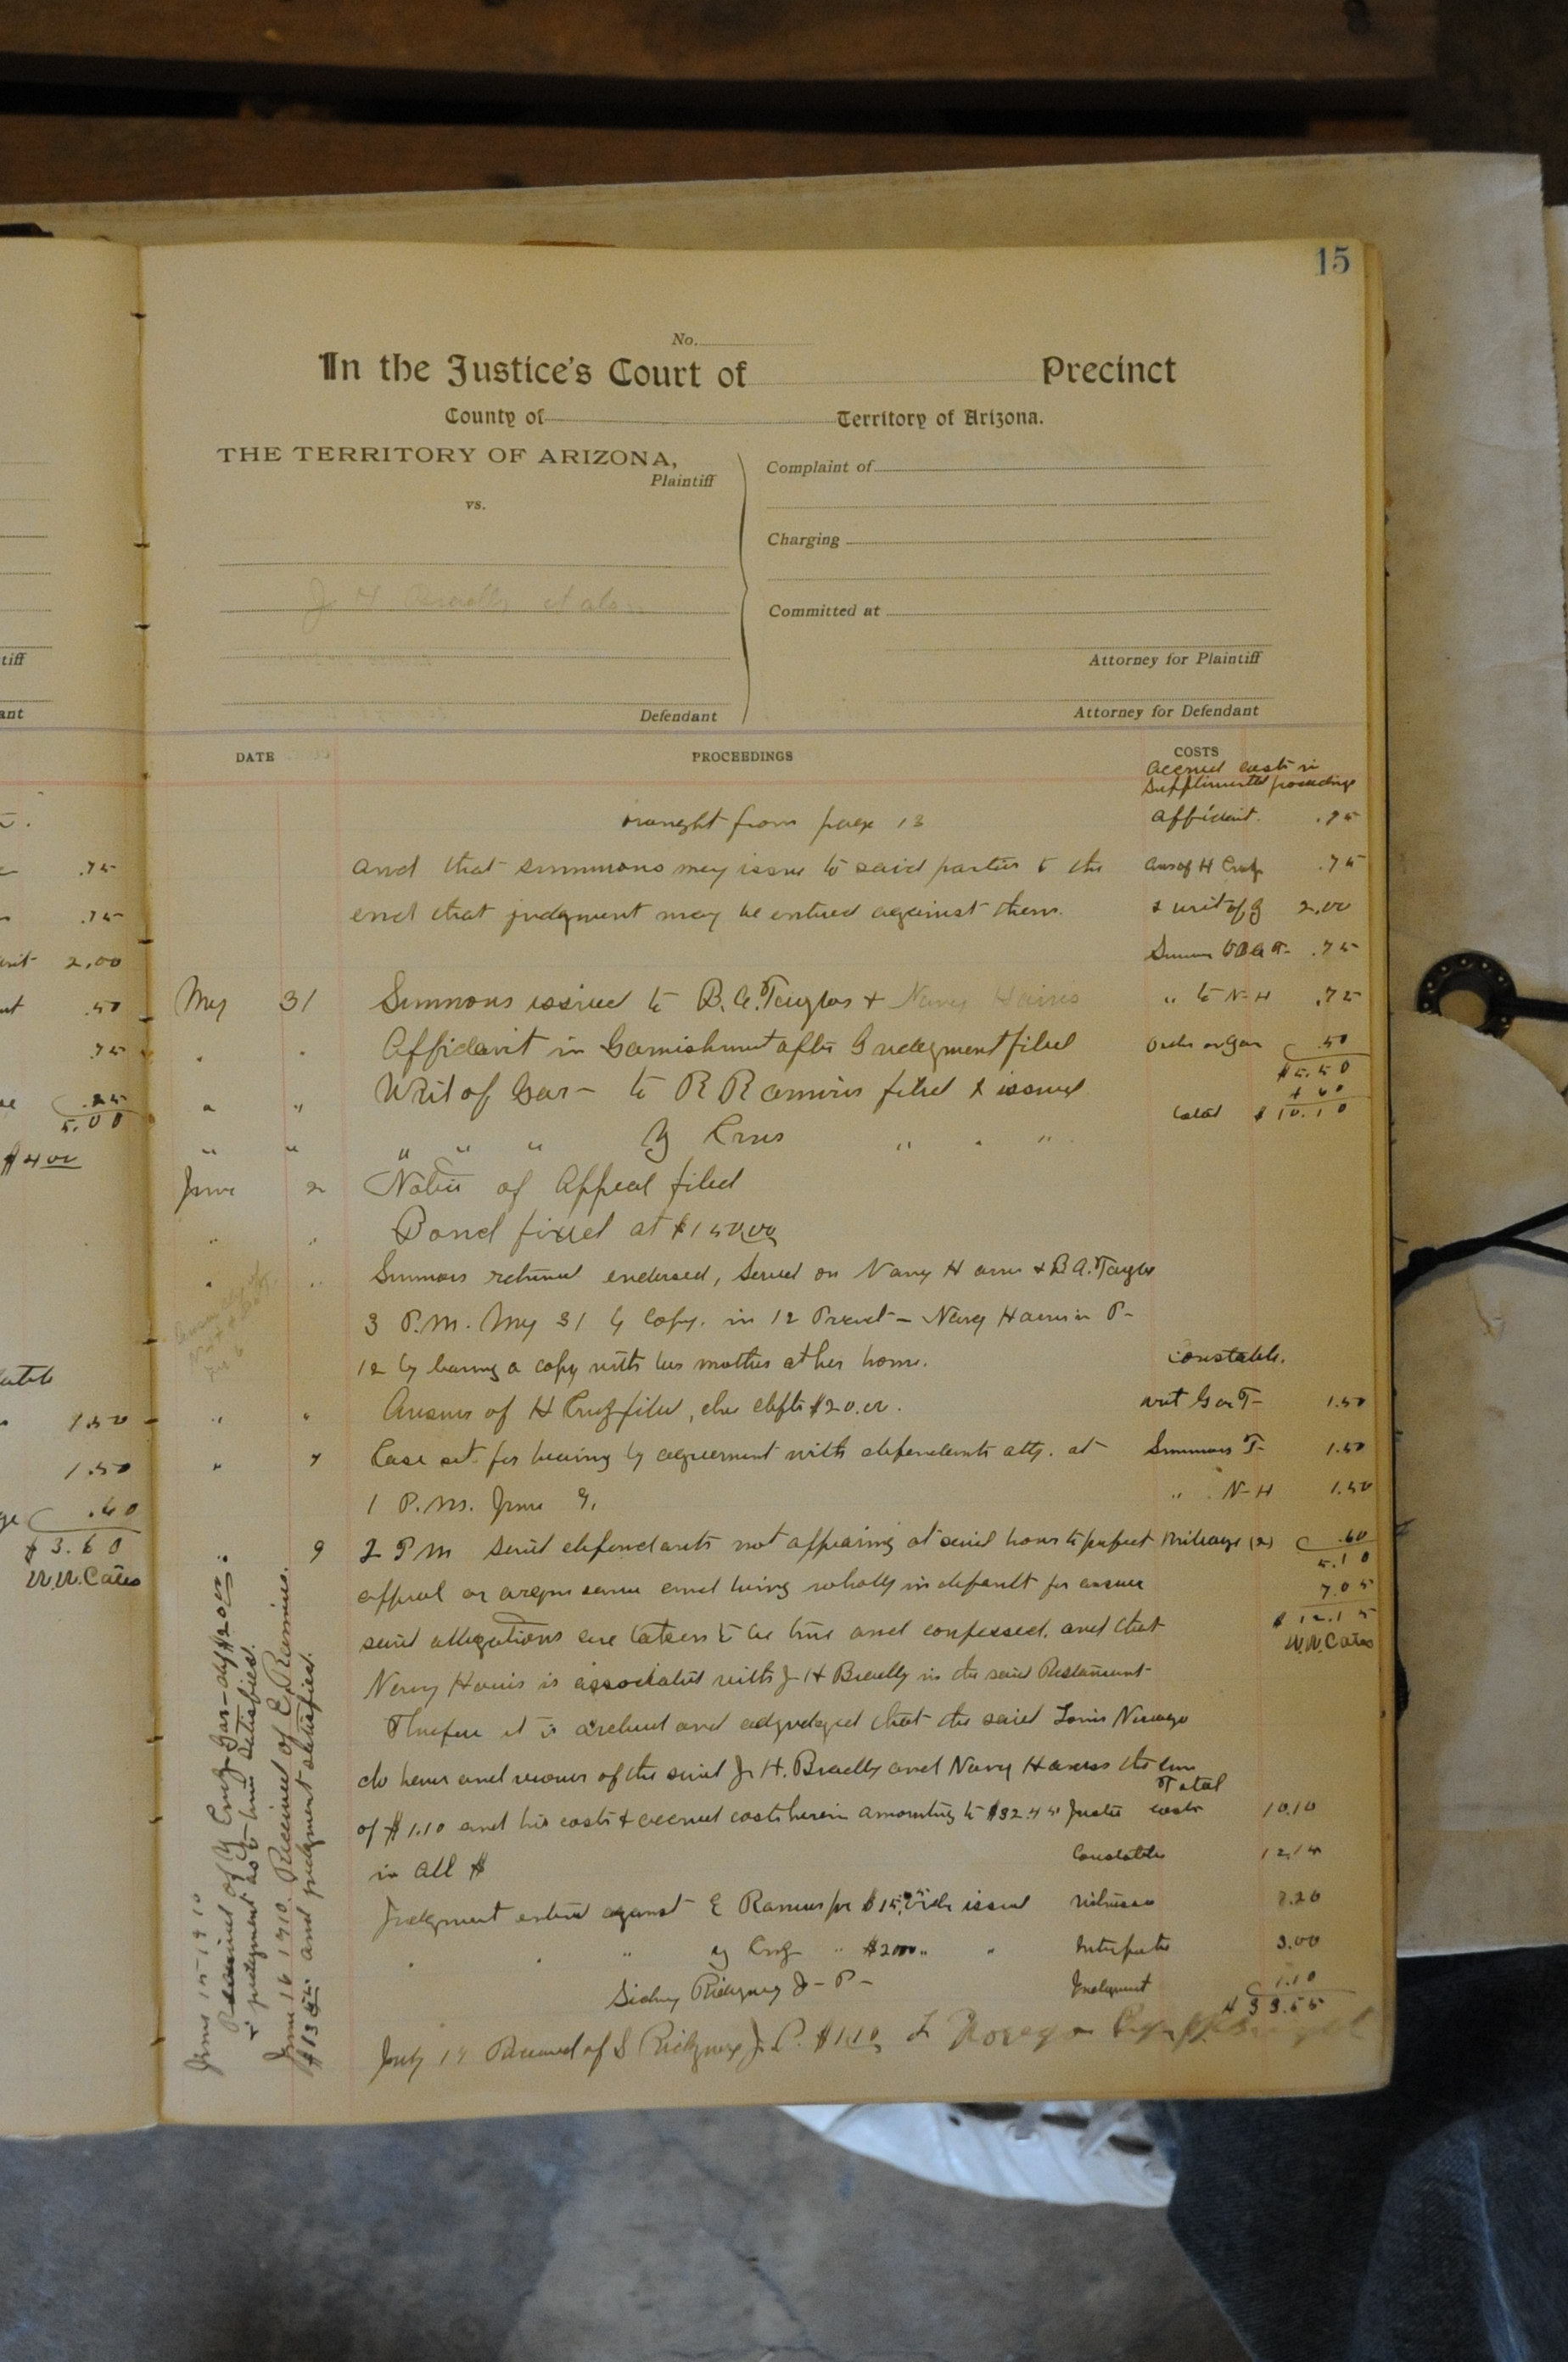 15
No.
In the Justice's Court of Precinct
County of Territory of Arizona.
THE TERRITORY OF ARIZONA,
Plaintiff
vs.
Complaint of
Charging
Committed at
Attorney for Plaintiff
Defendant
Attorney for Defendant
DATE PROCEEDINGS COSTS
Accrued costs in
from page 13 Affidavit.
and that summons may issue to said parties to the .75
end that judgment may be entered against them. & writ of g 2.00
.75
May 31 Summons issued to B. A. Taylor & Navy Harris " to N-H .75
" " Affidavit in Garnishment after Judgment filed .50
$5.50
" " Writ of Gar- to R Ramiris filed & issued
total $10.10
" " " " " Y Crus " " "
June 2 Notice of Appeal filed
" " Bond fixed at $150.00
" " Summons returned endorsed, served on Navy Harris & B.A. Taylor
3 P.M. May 31 by copy. in 12 Precinct - Navy Harris in P-
12 by leaving a copy with his mother at her home. Constable.
" " Answer of H Cruz filed, $20.00. writ Gar T- 1.50
" 7 Case set for hearing by agreement with defendants atty. at Summons T- 1.50
1 P.M. June 9. " N-H 1.50
9 2 P M said defendants not appearing at said hour to perfect Mileage (2) .60
appeal or and being wholly in default for answer 5.10
7.05
said allegations are taken to be true and confessed. and that $12.15
W.W. Cates
Navy Harris is associated with J H Bradly in the said Restaurant
Therefore it is ordered and adjudged that the said Louis
do have and recover of the said J. H. Bradly and Navy Harris the sum
Total
of $1.10 and his costs & accrued costs herein amounting to $32.45 Justice costs 10.10
in all $ Constable 12.15
Judgment entered against E Ramirus for issued witnesses 8.20
" Y Cruz " $20.00 " " Interpreter 3.00
Sidney Ridgway J-P- Judgment 1.10
$33.55
July 19 Received of S Ridgway J.P. $1.10
June 15 1910
Received of Y Cruz $20.00
judgment as to him satisfied.
June 16 1910. Received of E. Remirus.
and judgment satisfied.
tiff
ant
.75
.75
2.00
.50
.75
.25
5.00
$4.00
1.50
1.50
.60
$3.60
W.W. Cates